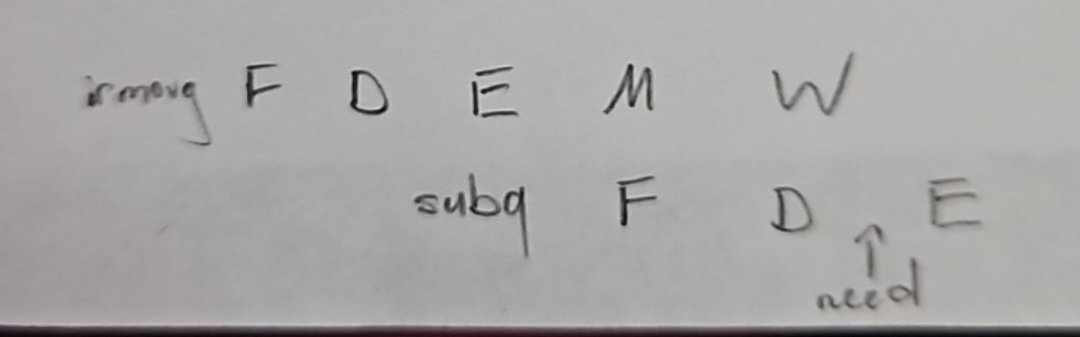 irmovq F D E M W
subq F D E
↑
need